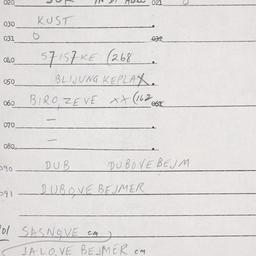 020 021 0
030 KUST
031 0 032
040 57157-KE (268
050 BLIJUNG KEPLAX
060 BIRO, ZEVE XX (162 061
070 —
080 —
090 DUB DUBOVE BEJM
091 DUBOVE BEJMER
101 SASNOVE cm
JALOVE BEJMER cm